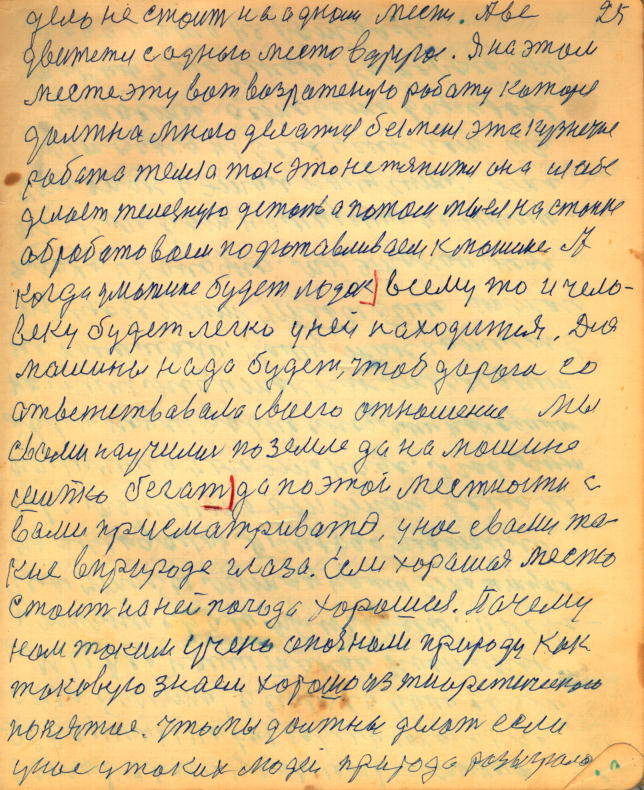 дело не стоит на одном месте. А все 25
движется с одного место в другое. Я на этом
месте эту вот возраженую работу которе
должна много делатся без меня эта кузнечное
работа тела так это не тянится она и себе
делает телезную деталь а потом мы ея на станке
обработоваем подготавливаем к машине А
когда у машине будет подох всему то и чело-
веку будет легко у ней находится. Для
машины нада будет, чтоб дорога со
атветствавала своего отношение Мы
своеми научились по земле да на машине
шипко бегат да по этой местности с
вами присматриватъ, у нас своеми та-
кие в природе глаза. Если хорашая место
стоит на ней погода хорошия. Пачему
нам таким учено опознали природу как
таковую знаем хорошо из тиоретического
покятие. Что мы должны делат если
у нас у таких людей природа розыграла